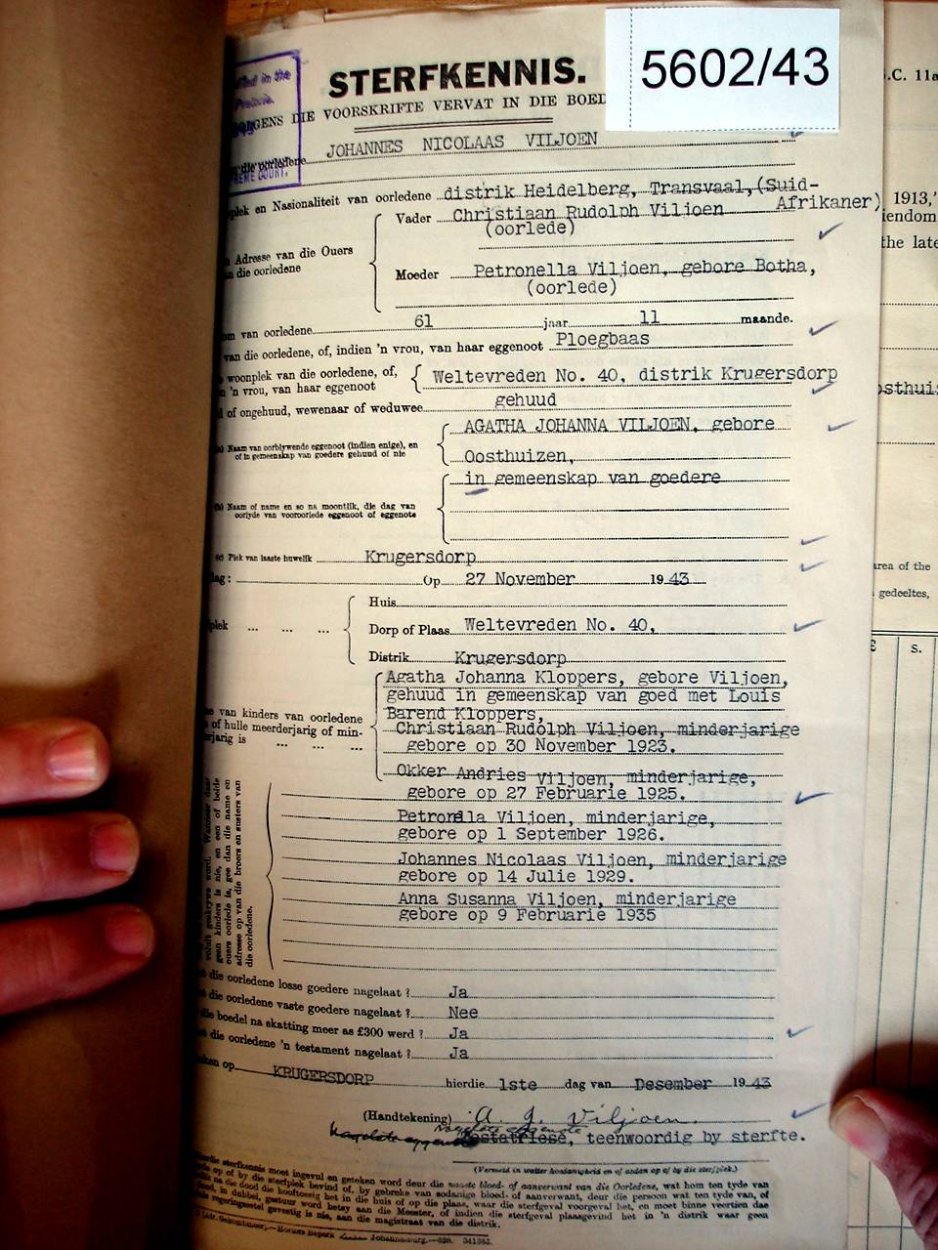 STERFKENNIS.
5602/43
DIE VOORSKRIFTE VERVAT IN DIE BOED
JOHANNES NICOLAAS VILJOEN
en Nasionaliteit van oorledene distrik Heidelberg, Transvaal, (Suid-
Afrikaner)
Vader Christiaan Rudolph Viljoen
(oorlede)
Adresse van die Ouers
die oorledene
Moeder Petronella Viljoen, gebore Botha,
(oorlede)
van oorledene 61 jaar 11 maande.
van die oorledene, of, indien 'n vrou, van haar eggenoot Ploegbaas
woonplek van die oorledene, of,
'n vrou, van haar eggenoot
Weltevreden No. 40, distrik Krugersdorp
of ongehuud, wewenaar of weduwee gehuud
Naam van oorblywende eggenoot (indien enige), en
of in gemeenskap van goedere gehuud of nie
AGATHA JOHANNA VILJOEN, gebore
Oosthuizen,
in gemeenskap van goedere
(b) Naam of name en so na moontlik, die dag van
oorlyde van vooroorlede eggenoot of eggenote
(c) Plek van laaste huwelik Krugersdorp
dag: Op 27 November 1943
Huis
plek ... ... ... Dorp of Plaas Weltevreden No. 40,
Distrik Krugersdorp
Agatha Johanna Kloppers, gebore Viljoen,
gehuud in gemeenskap van goed met Louis
Barend Kloppers,
van kinders van oorledene
of hulle meerderjarig of min-
derjarig is ... ... ...
Christiaan Rudolph Viljoen, minderjarige
gebore op 30 November 1923.
Okker Andries Viljoen, minderjarige,
gebore op 27 Februarie 1925.
Petronella Viljoen, minderjarige,
gebore op 1 September 1926.
Johannes Nicolaas Viljoen, minderjarige
gebore op 14 Julie 1929.
Anna Susanna Viljoen, minderjarige
gebore op 9 Februarie 1935
geen kinders is nie, en een of beide
ouers oorlede is, gee dan die name en
adresse op van die broers en susters van
die oorledene.
die oorledene losse goedere nagelaat ? Ja
die oorledene vaste goedere nagelaat ? Nee
die boedel na skatting meer as £300 werd ? Ja
die oorledene 'n testament nagelaat ? Ja
op KRUGERSDORP hierdie 1ste dag van Desember 1943
(Handtekening) A. J. Viljoen.
nagelate eggenote
teenwoordig by sterfte.
(Vermeld in watter hoedanigheid en of anders op of by die sterfplek.)
sterfkennis moet ingevul en geteken word deur die naaste bloed- of aanverwant van die Oorledene, wat hom ten tyde van
of by die sterfplek bevind of, by gebreke van sodanige bloed- of aanverwant, deur die persoon wat ten tyde van, of
na die dood die hooftoesig het in die huis of op die plaas, waar die sterfgeval voorgeval het, en moet binne veertien dae
in dubbel, gestuur word
gevestig is nie, aan die magistraat van die distrik.
S.C. 11a
1913,
iendom
the late
osthui
area of the
gedeeltes,
£ s.